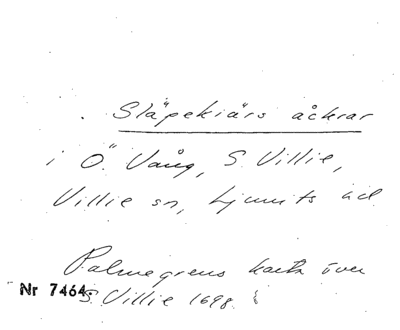 Släpekiärs åkrar
i Ö. Vång, S. Villie,
Villie sn, Ljunits hd
Palmegrens karta över
Nr 7464. S. Villie 1698.